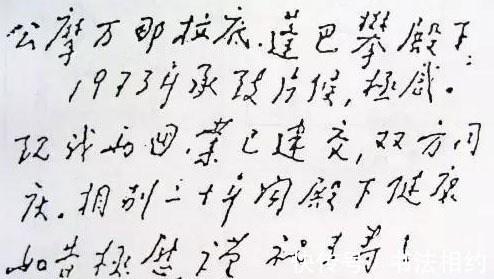 公摩万那拉底·蓬巴攀殿下:
1973年承致片候,极感。
现我两国,业已建交,双方同
庆。相别二十年闻殿下健康
如昔极慰 谨祝寿!
快传号/书法相约